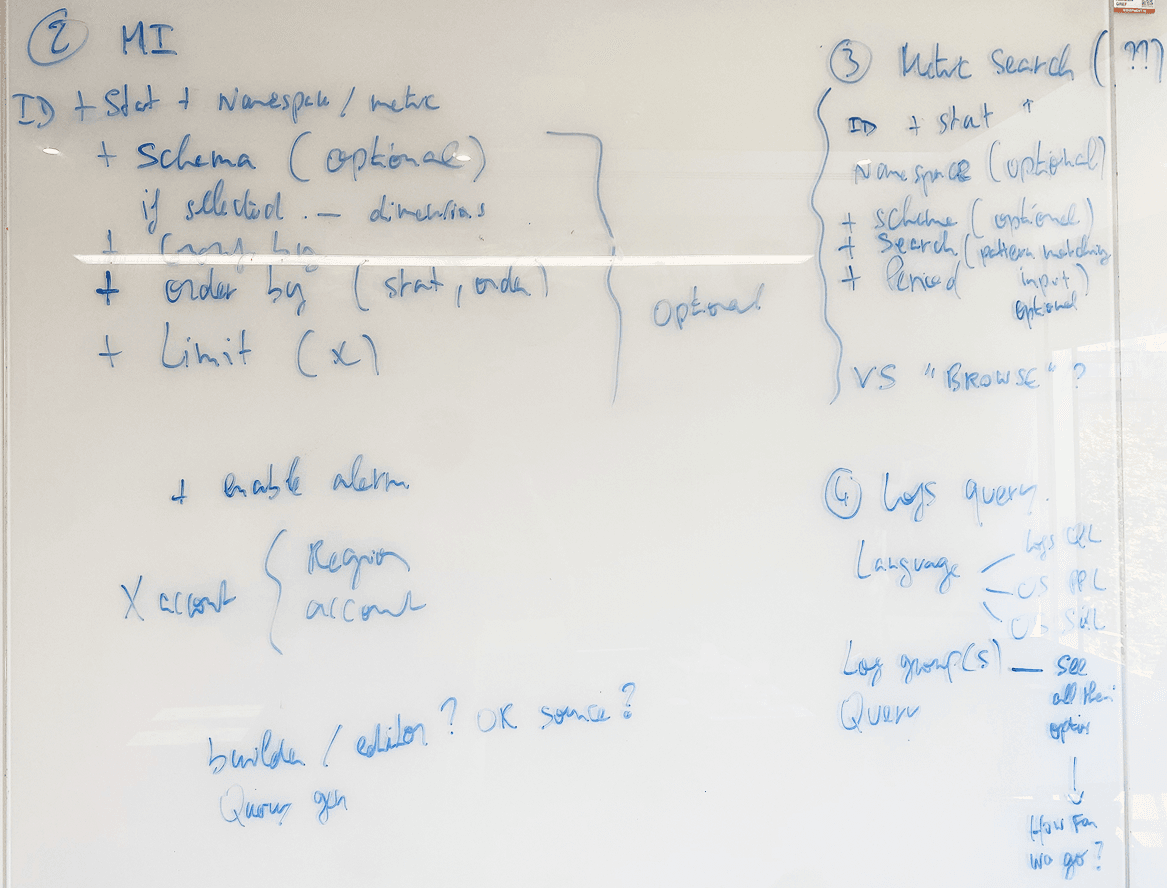 ② MI
ID + Stat + Namespace / metric
+ Schema (optional)
if selected. — dimensions
+ Group by
+ order by (stat, order)
+ Limit (x)
Optional
+ enable alarm
X account { Region
account
builder / editor? OR source?
Query gen
③ Metric Search (???)
ID + stat +
Namespace (optional)
+ schema (optional)
+ Search (pattern matching
input)
+ Period
optional
VS "BROWSE" ?
④ Logs query.
Language
Logs QL
OS PPL
OS SQL
Log group(s) — see
all their
options
Query
↓
How Far
we go?